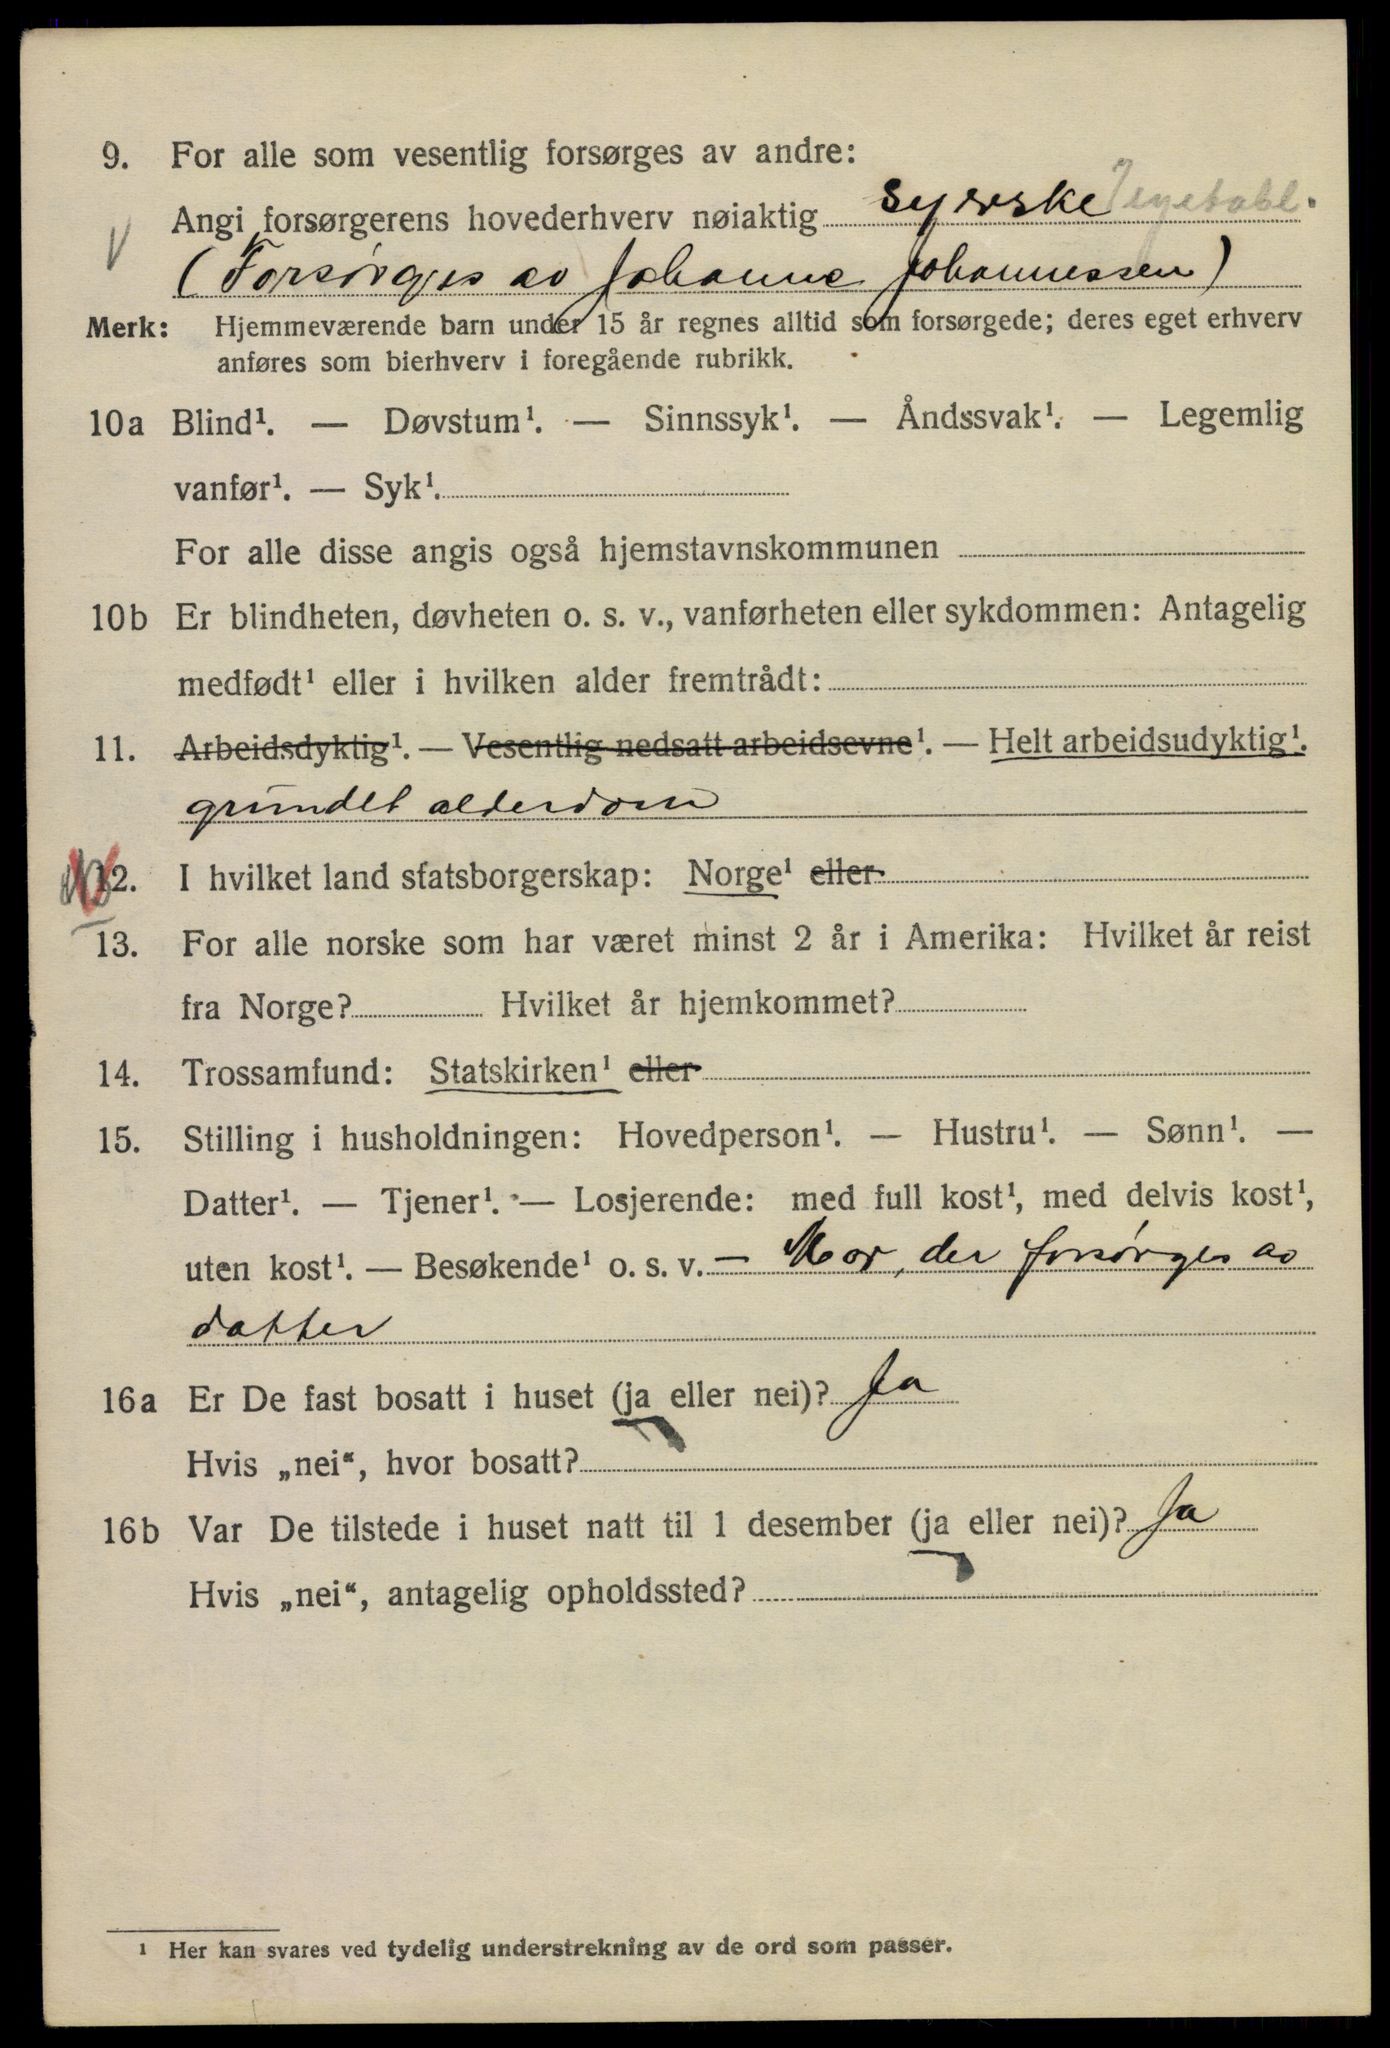 9. For alle som vesentlig forsørges av andre:
Angi forsørgerens hovederhverv nøiaktig syerske
(Forsørges av Johanne Johannessen)
Merk: Hjemmeværende barn under 15 år regnes alltid som forsørgede; deres eget erhverv
anføres som bierhverv i foregående rubrikk.
10a Blind¹. — Døvstum¹. — Sinnssyk¹. — Åndssvak¹. — Legemlig
vanfør¹. — Syk¹.
For alle disse angis også hjemstavnskommunen
10b Er blindheten, døvheten o. s. v., vanførheten eller sykdommen: Antagelig
medfødt¹ eller i hvilken alder fremtrådt:
11. Arbeidsdyktig¹. — Vesentlig nedsatt arbeidsevne¹. — Helt arbeidsudyktig¹.
grundet alderdom
12. I hvilket land statsborgerskap: Norge¹ eller
13. For alle norske som har været minst 2 år i Amerika: Hvilket år reist
fra Norge? Hvilket år hjemkommet?
14. Trossamfund: Statskirken¹ eller
15. Stilling i husholdningen: Hovedperson¹. — Hustru¹. — Sønn¹. —
Datter¹. — Tjener¹. — Losjerende: med full kost¹, med delvis kost¹,
uten kost¹. — Besøkende¹ o. s. v. — Mor, der forsørges av
datter
16a Er De fast bosatt i huset (ja eller nei)? Ja
Hvis „nei“, hvor bosatt?
16b Var De tilstede i huset natt til 1 desember (ja eller nei)? Ja
Hvis „nei“, antagelig opholdssted?
¹ Her kan svares ved tydelig understrekning av de ord som passer.